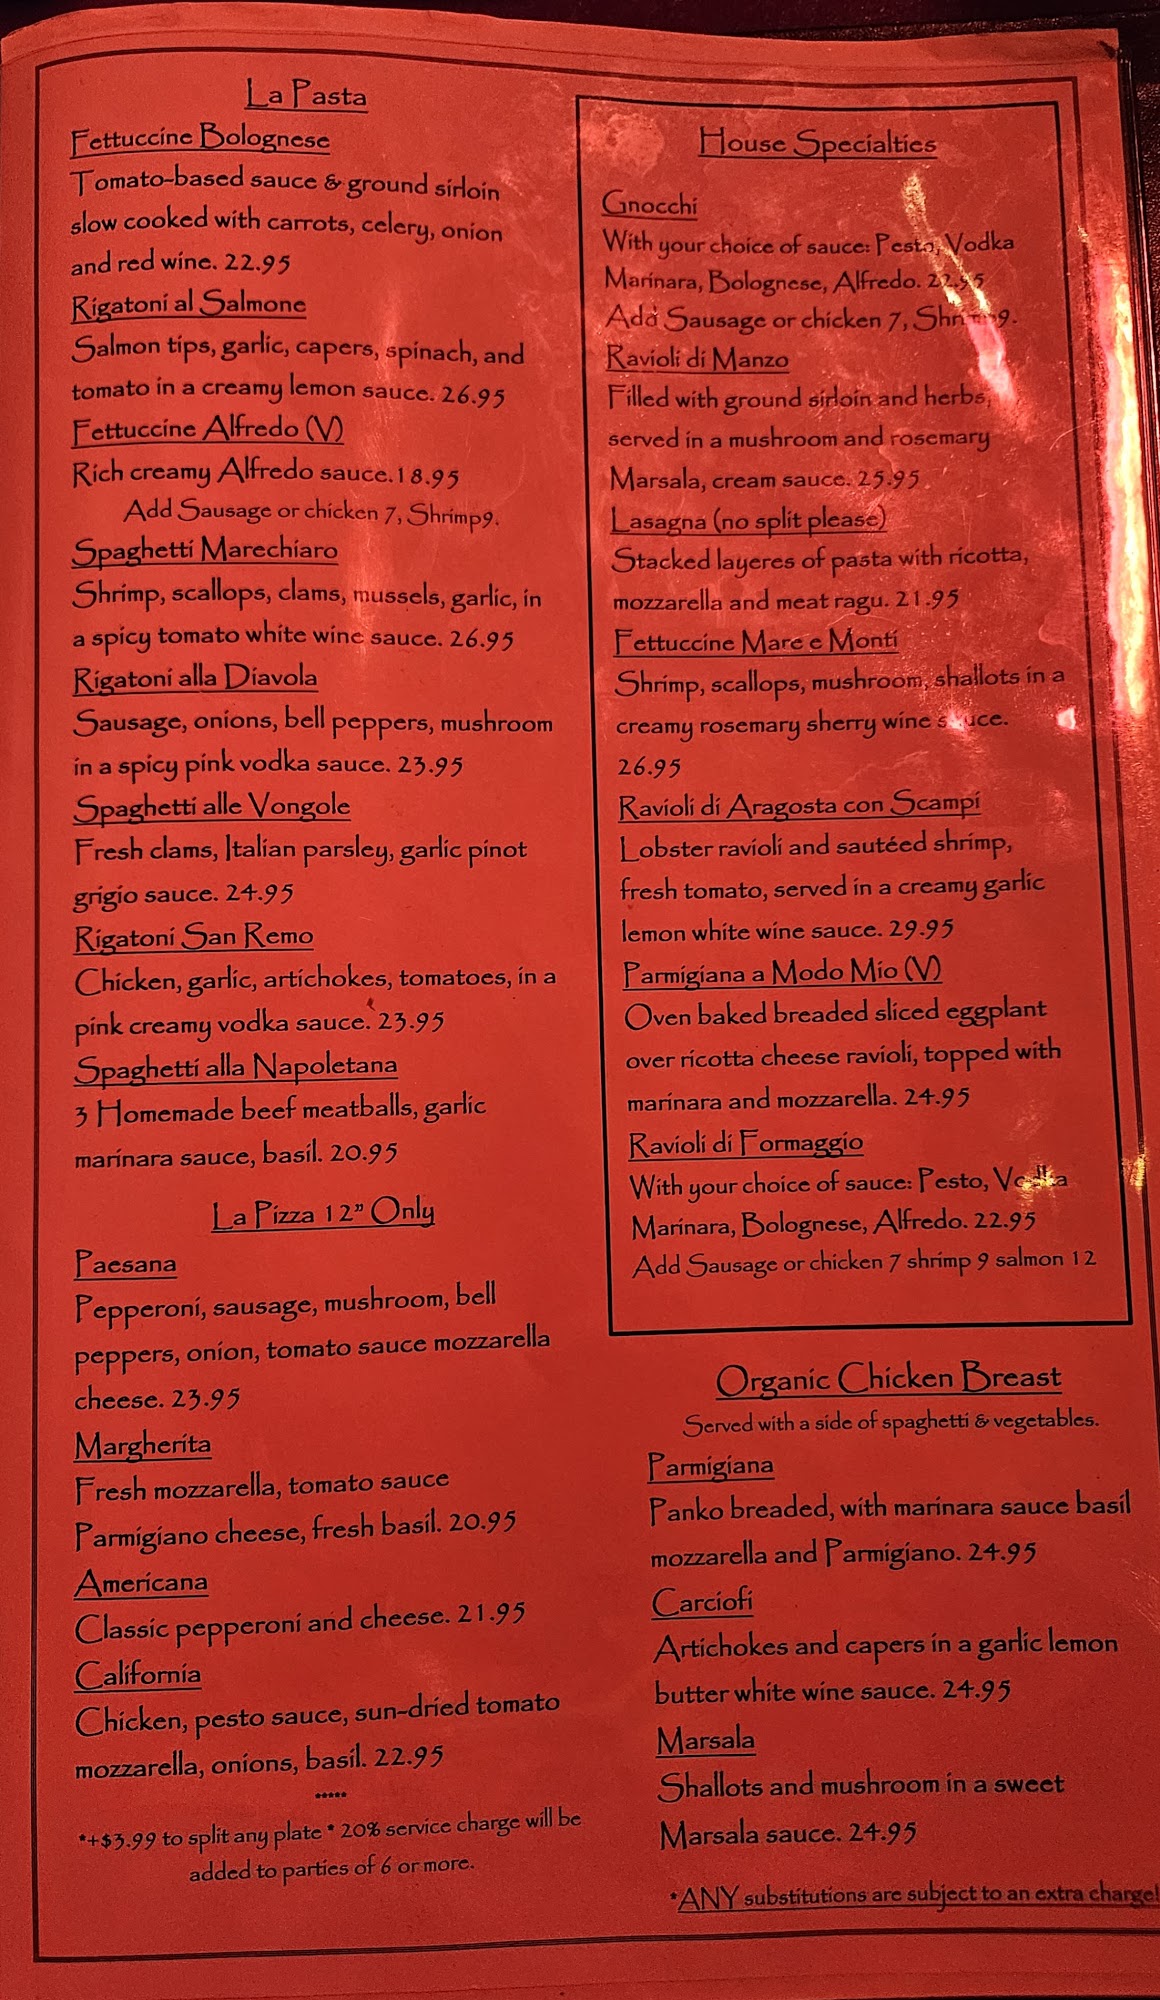 La Pasta
Fettuccine Bolognese
Tomato-based sauce & ground sirloin
slow cooked with carrots, celery, onion
and red wine. 22.95
Rigatoni al Salmone
Salmon tips, garlic, capers, spinach, and
tomato in a creamy lemon sauce. 26.95
Fettuccine Alfredo (V)
Rich creamy Alfredo sauce.18.95
Add Sausage or chicken 7, Shrimp9.
Spaghetti Marechiaro
Shrimp, scallops, clams, mussels, garlic, in
a spicy tomato white wine sauce. 26.95
Rigatoni alla Diavola
Sausage, onions, bell peppers, mushroom
in a spicy pink vodka sauce. 23.95
Spaghetti alle Vongole
Fresh clams, Italian parsley, garlic pinot
grigio sauce. 24.95
Rigatoni San Remo
Chicken, garlic, artichokes, tomatoes, in a
pink creamy vodka sauce. 23.95
Spaghetti alla Napoletana
3 Homemade beef meatballs, garlic
marinara sauce, basil. 20.95
La Pizza 12" Only
Paesana
Pepperoni, sausage, mushroom, bell
peppers, onion, tomato sauce mozzarella
cheese. 23.95
Margherita
Fresh mozzarella, tomato sauce
Parmigiano cheese, fresh basil. 20.95
Americana
Classic pepperoni and cheese. 21.95
California
Chicken, pesto sauce, sun-dried tomato
mozzarella, onions, basil. 22.95
*****
*+$3.99 to split any plate * 20% service charge will be
added to parties of 6 or more.
House Specialties
Gnocchi
With your choice of sauce: Pesto, Vodka
Marinara, Bolognese, Alfredo. 22.95
Add Sausage or chicken 7, Shrimp9.
Ravioli di Manzo
Filled with ground sirloin and herbs,
served in a mushroom and rosemary
Marsala, cream sauce. 25.95
Lasagna (no split please)
Stacked layeres of pasta with ricotta,
mozzarella and meat ragu. 21.95
Fettuccine Mare e Monti
Shrimp, scallops, mushroom, shallots in a
creamy rosemary sherry wine sauce.
26.95
Ravioli di Aragosta con Scampi
Lobster ravioli and sautéed shrimp,
fresh tomato, served in a creamy garlic
lemon white wine sauce. 29.95
Parmigiana a Modo Mio (V)
Oven baked breaded sliced eggplant
over ricotta cheese ravioli, topped with
marinara and mozzarella. 24.95
Ravioli di Formaggio
With your choice of sauce: Pesto, Vodka
Marinara, Bolognese, Alfredo. 22.95
Add Sausage or chicken 7 shrimp 9 salmon 12
Organic Chicken Breast
Served with a side of spaghetti & vegetables.
Parmigiana
Panko breaded, with marinara sauce basil
mozzarella and Parmigiano. 24.95
Carciofi
Artichokes and capers in a garlic lemon
butter white wine sauce. 24.95
Marsala
Shallots and mushroom in a sweet
Marsala sauce. 24.95
*ANY substitutions are subject to an extra charge!